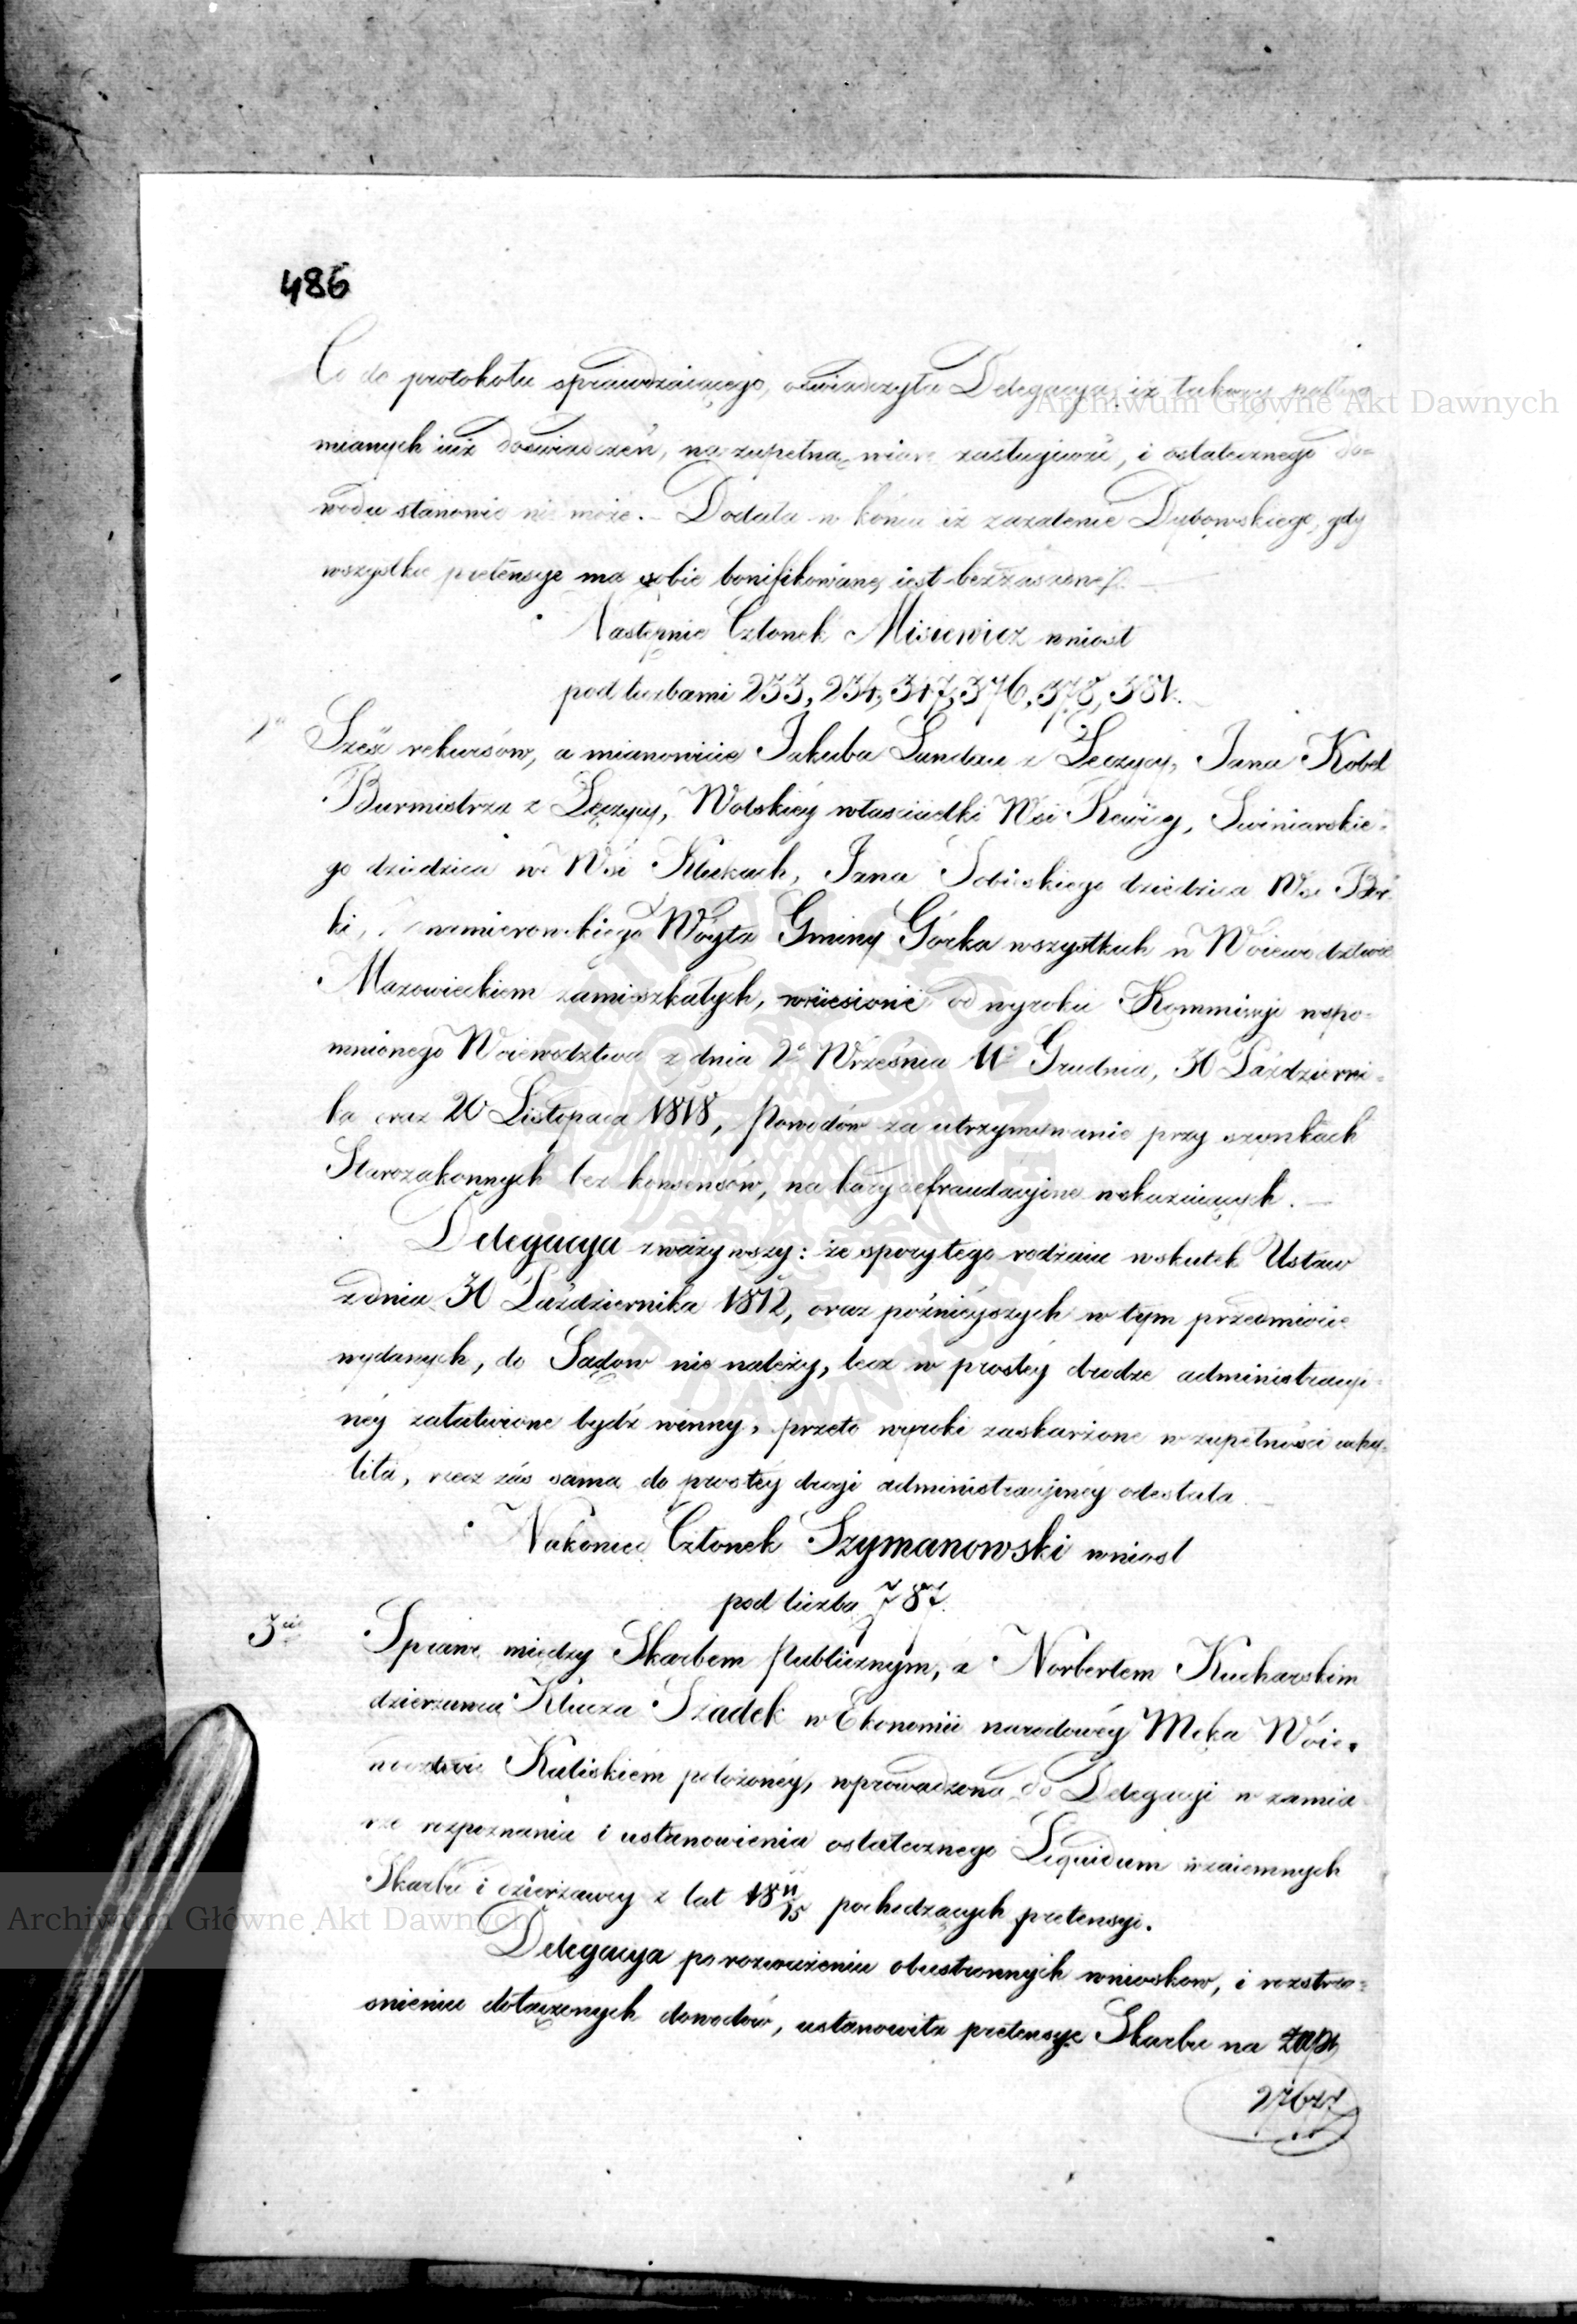 486
Co do protokołu sprawdzaiącego, oświadczyła Delegacya, iż takowy
mianych iuż doświadczeń, na zupełną wiarę zasługiwać, i ostatecznego do=
wodu stanowić nie może. – Dodała w końcu iż zażalenie Dybowskiego, gdy
wszystkie pretensye ma sobie bonifikowane, iest bezzasadne. –
Następnie Członek Misiewicz wniosł
pod liczbami 233, 234, 347, 376, 378, 381.
1o
Sześć rekursów, a mianowicie Jakuba Landau z Łęczycy, Jana Kobel
Burmistrza z Łęczycy, Wolskiéy właścicielki Wsi Swiniarskie=
go dziedzica we Wsi Klukach, Jana Sobieskiego dziedzica Wsi Bor=
ki, Wóyta Gminy Górka wszystkich w Woiewództwie
Mazowieckiem zamieszkałych, wniesione od wyroku Kommissyi wspo=
mnionego Woiewództwa z dnia 2o Września 11o Grudnia, 30 Październi=
ka oraz 20 Listopada 1818, Powodów za utrzymywanie przy szynkach
Starozakonnych bez konsensów, na kary defraudacyine wskazuiących. –
Delegacya zważywszy: że spory tego rodzaiu wskutek Ustaw
z dnia 30 Października 1812, oraz późnieyszych w tym przedmiocie
wydanych, do Sądow nie należą, lecz w prostéy drodze administracyi=
néy załatwione bydź winny, przeto wyroki zaskarżone w zupełności uchy=
liła, rzecz zaś sama do prostéy drogi administracyinéy odesłała. –
Nakoniec Członek Szymanowski wniosł
pod liczbą 787.
3cie
Sprawę między Skarbem Publicznym, a Norbertem Kucharskim
dzierżawcą Klucza Szadek w Ekonomii narodowéy Męka Wóie=
wodztwie Kaliskiém położonéy, wprowadzoną do Delegacyi w zamia=
rze rozpoznania i ustanowienia ostatecznego Liquidum wzaiemnych
Skarbu i dzierżawcy z lat 18 11/15 pochodzących pretensyi.
Delegacya po rozważeniu obustronnych wniosków, i roztrzą=
śnieniu dołączonych dowodów, ustanowiła pretensye Skarbu na
Archiwum Główne Akt Dawnych
Archiwum Główne Akt Dawnych